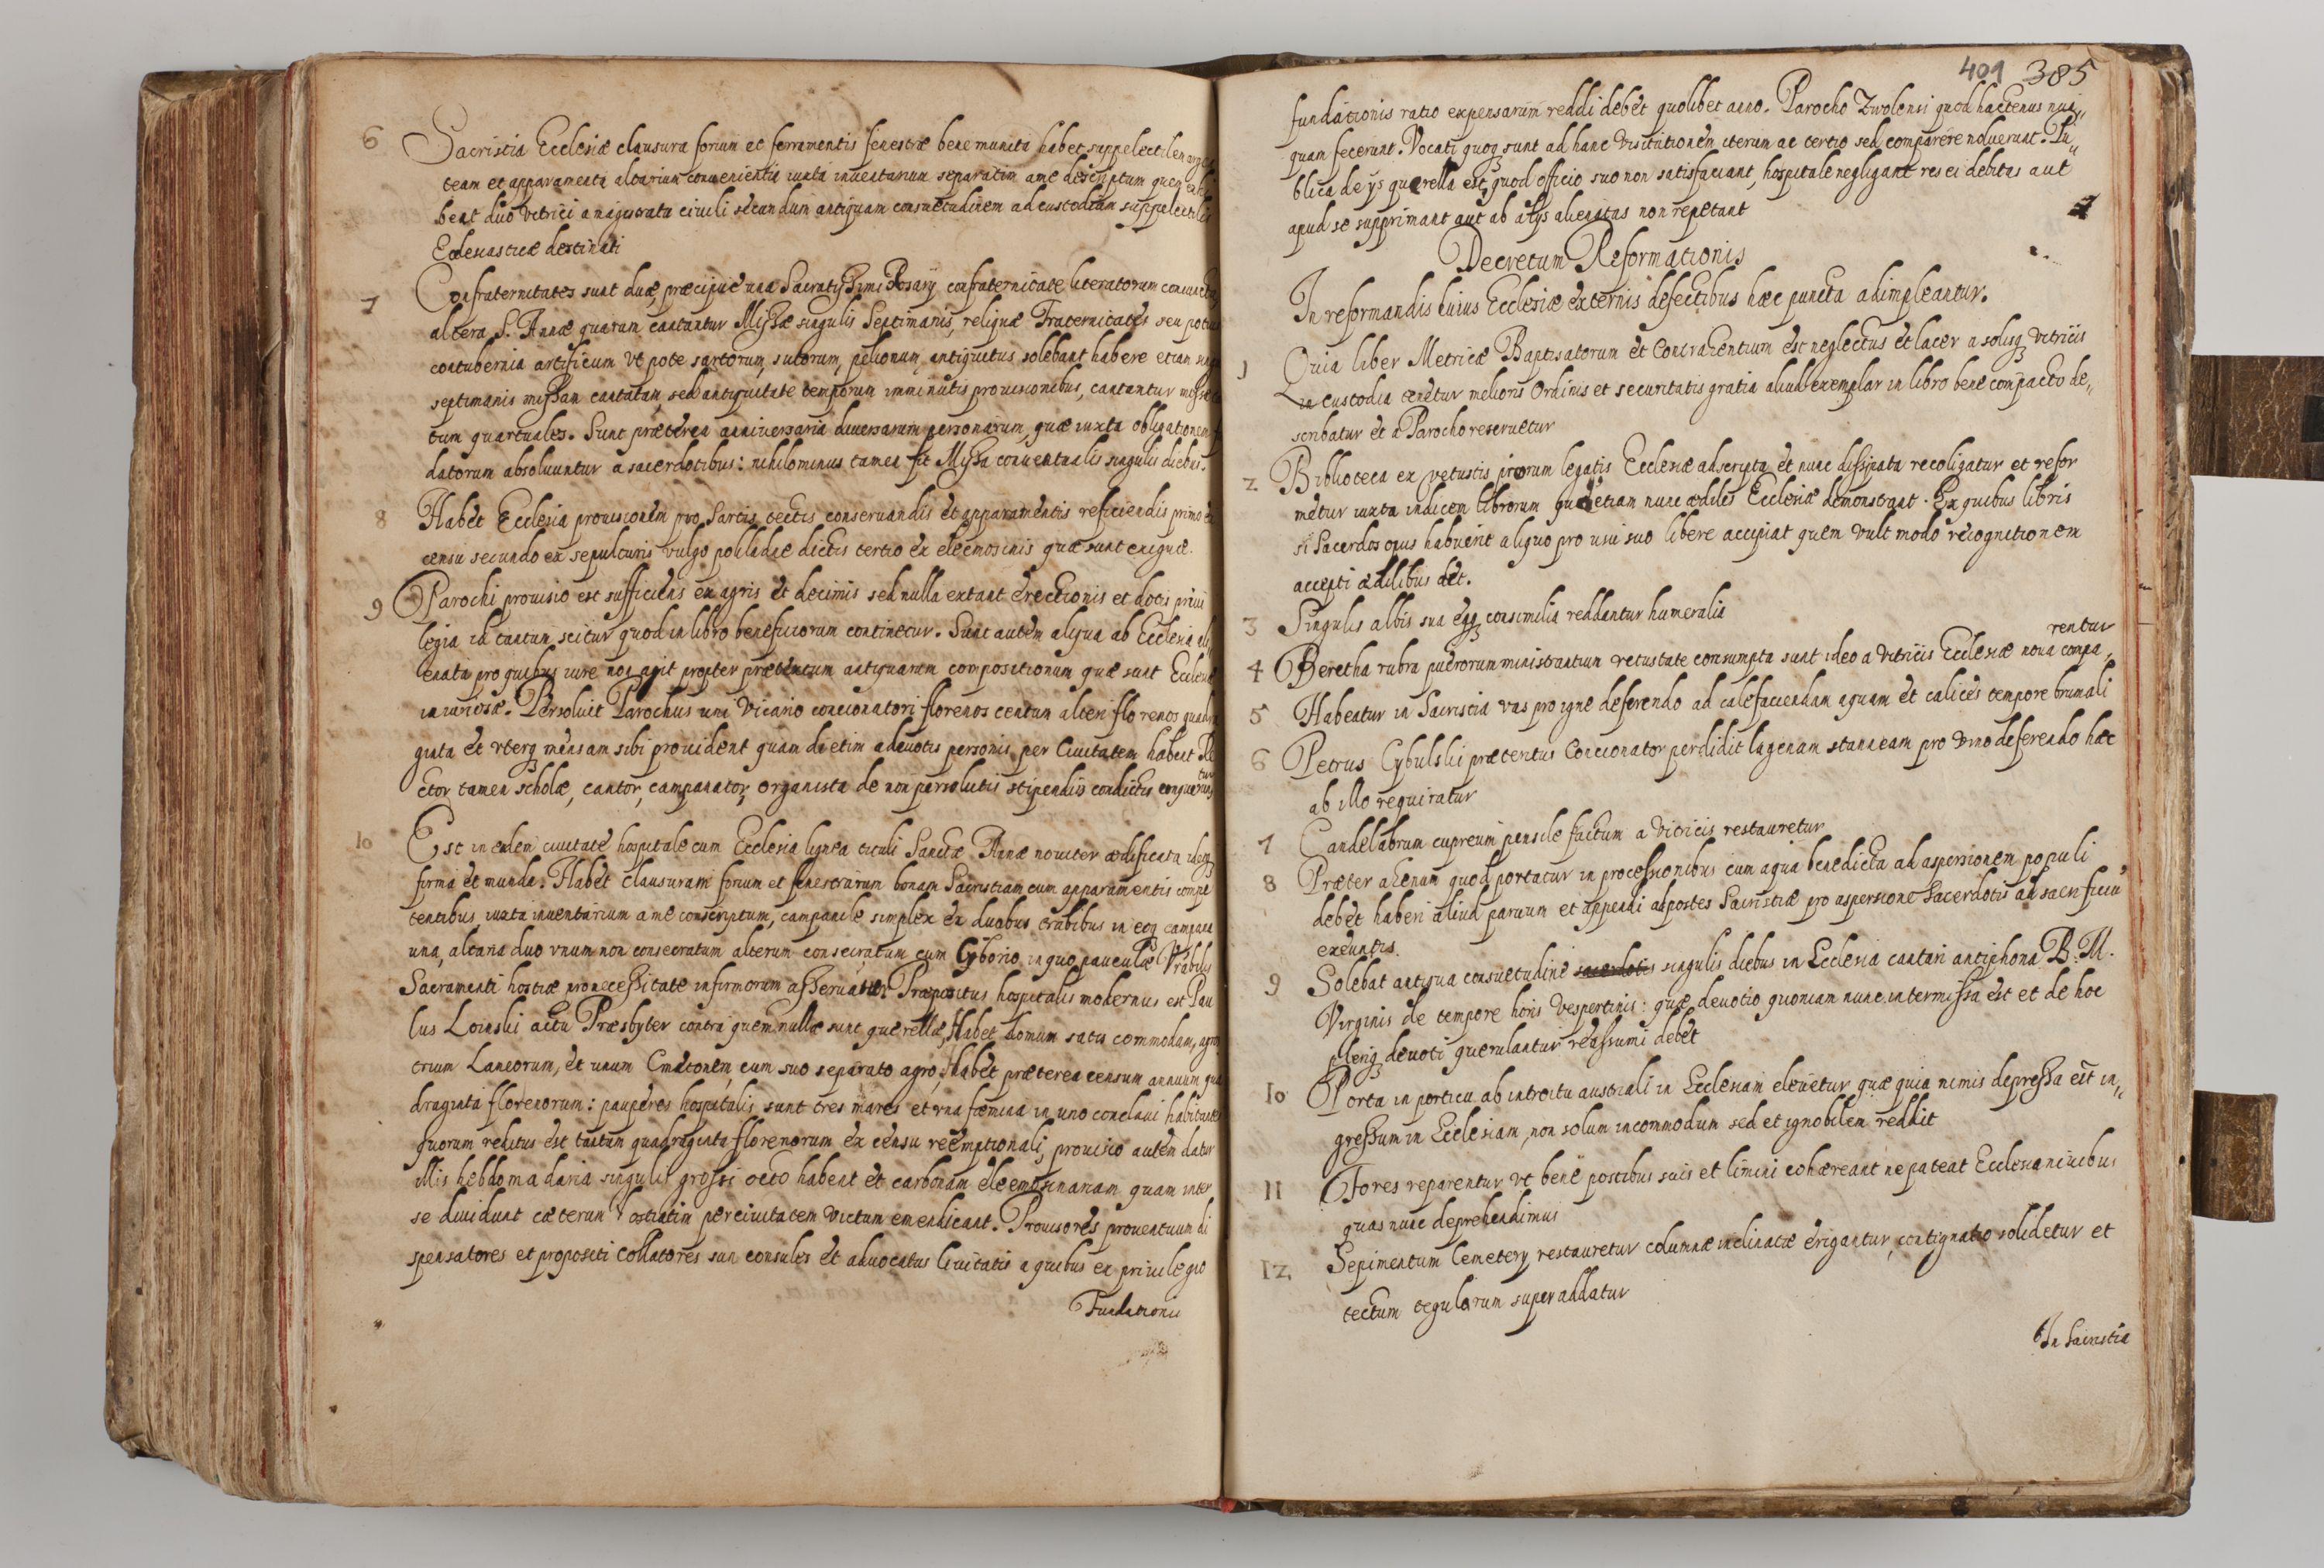 6 Sacristia Ecclesiæ clausura forium et ferramentis fenestræ bene munita habet suppelectilem argen
team et apparamenta altarium convenientia iuxta inuentarium separatim a me descriptum quem exhi
bent duo vitrici a magistratu ciuili secundum antiquam consuetudinem ad custodiam suppelectilis
Ecclesiasticæ destinati
7 Confraternitates sunt duæ, præcipuè una Sacratissimi Rosarÿ confraternitate literatorum coniuncta
altera S. Annæ quarum cantantur Missæ singulis Septimanis, reliquæ Fraternitates seu potius
contubernia artificum vt pote sartorum, sutorum, pelionum, antiquitus solebant habere etiam singulis
septimanis missam cantatam, sed antiquitate temporum imminutis prouisionibus, cantantur missæ
tum quartuales. Sunt præterea anniuersaria diuersarum personarum, quæ iuxta obligationem
datorum absoluuntur a sacerdotibus: nihilominus tamen fit Missa conuentualis singulis diebus.
8 Habet Ecclesia prouisionem pro sartis tectis conseruandis et apparamentis reficiendis primo ex
censu secundo ex sepulturis vulgo pokladne dictis tertio ex eleemosinis quæ sunt exiguæ.
9 Parochi prouisio est sufficiens ex agris et decimis sed nulla extant erectionis et dotis priui
legia id tantum scitur quod in libro beneficiorum continetur. Sunt autem aliqua ab Ecclesia ali
enata pro quibus iure non agit propter prætextum antiquarum compositionum quæ sunt Ecclesiæ
iniuriosæ. Persoluit Parochus uni Vicario concionatori florenos centum alteri florenos quadra
ginta et vterq mensam sibi prouident quam dietim a deuotis personis per Ciuitatem habent Re
ctor tamen scholæ, cantor, campanator, organista de non persolutis stipendiis condictis conquerun
tur
10 Est in eadem ciuitate hospitale cum Ecclesia lignea tituli Sanctæ Annæ nouiter ædificata ideoq
firma et munda. Habet clausuram forium et fenestrarum bonam Sacristiam cum apparamentis compe
tentibus, iuxta inuentarium a me conscriptum, campanile simplex ex duobus trabibus in eoq campana
una, altaria duo vnum non consecratum alterum consecratum cum Cyborio in quo pauculæ Venerabilis
Sacramenti hostiæ pro necessitate infirmorum asseruantur. Præpositus hospitalis modernus est Pau
lus Loinski actu Præsbyter contra quem nullæ sunt querellæ, Habet domum satis commodam, agros
trium Laneorum, et unum Cmetonem, cum suo separato agro, Habet præterea censum annuum qua
draginta florenorum: pauperes hospitalis sunt tres mares et vna fæmina in uno conclaui habitantes
quorum reditus est tantum quadraginta florenorum ex censu reemptionali, prouisio autem datur
illis hebdomadaria singulis grossi octo habent et carbonam eleemosinariam quam inter
se diuidunt cæterum ostiatim per ciuitatem victum emendicant. Prouisores prouentuum di
spensatores et propositi Collatores sun consules et aduocatus Ciuitatis a quibus ex priuilegio
Fundationis
401 385
fundationis ratio expensarum reddi debet quolibet anno. Parocho Zwolensi quod hactenus nun„
quam fecerunt. Vocati quoq sunt ad hanc visitationem iterum ac tertio sed comparere noluerunt. Pu„
blica de ÿs querella est, quod officio suo non satisfaciant, hospitale negligant res ei debitas aut
apud se supprimant aut ab alÿs alienatas non repetant
Decretum Reformationis
In reformandis huius Ecclesiæ externis defectibus hæc puncta adimpleantur.
1 Quia liber Metricæ Baptisatorum et Contrahentium est neglectus et lacer a solisq vitriciis
in custodia tenetur melioris Ordinis et securitatis gratia aliud exemplar in libro bene compacto de„
scribatur et a Parocho reseruetur
2 Biblioteca ex vetustis priorum legatis Ecclesiæ adscripta et nunc dissipata recoligatur et refor
metur iuxta indicem librorum quem etiam nunc ædiles Ecclesiæ demonstrant. Ex quibus libris
si Sacerdos opus habuerit aliquo pro usu suo libere accipiat quem vult modo recognitionem
accepti ædilibus det.
3 Singulis albis sua eisq consimilia reddantur humeralia
4 Beretha rubra puerorum ministrantium vetustate consumpta sunt ideo a vitriciis Ecclesiæ noua compa
rentur
5 Habeatur in Sacristia vas pro igne deferendo ad calefaciendam aquam et calices tempore brumali
6 Petrus Cybulski præteritus Concionator perdidit lagenam stanneam pro vino deferendo hæc
ab illo requiratur
7 Candelabrum cupreum pensile fractum a vitricis restauretur
8 Præter ahenum quod portatur in processionibus cum aqua benedicta ad aspersionem populi
debet haberi aliud paruum et appendi ad postes Sacristiæ pro aspersione Sacerdotis ad sacrificiu
exeuntis.
9 Solebat antiqua consuetudine sacerdotis singulis diebus in Ecclesia cantari antiphona B. M.
Virginis de tempore horis vespertinis: quæ deuotio quoniam nunc intermissa est et de hoc
pleriq deuoti querulantur reassumi debet
10 Porta in porticu ab introitu australi in Ecclesiam eleuetur quæ quia nimis depressa est in„
gressum in Ecclesiam, non solum incommodum sed et ignobilem reddit
11 Fores reparentur vt bene postibus suis et limini cohæreant ne pateat Ecclesia niuibus
quas nunc deprehendimus
12 Sepimentum Cemeterÿ restauretur columnæ inclinatæ erigantur, contignatio solidetur et
tectum tegularum superaddatur
In Sacristia